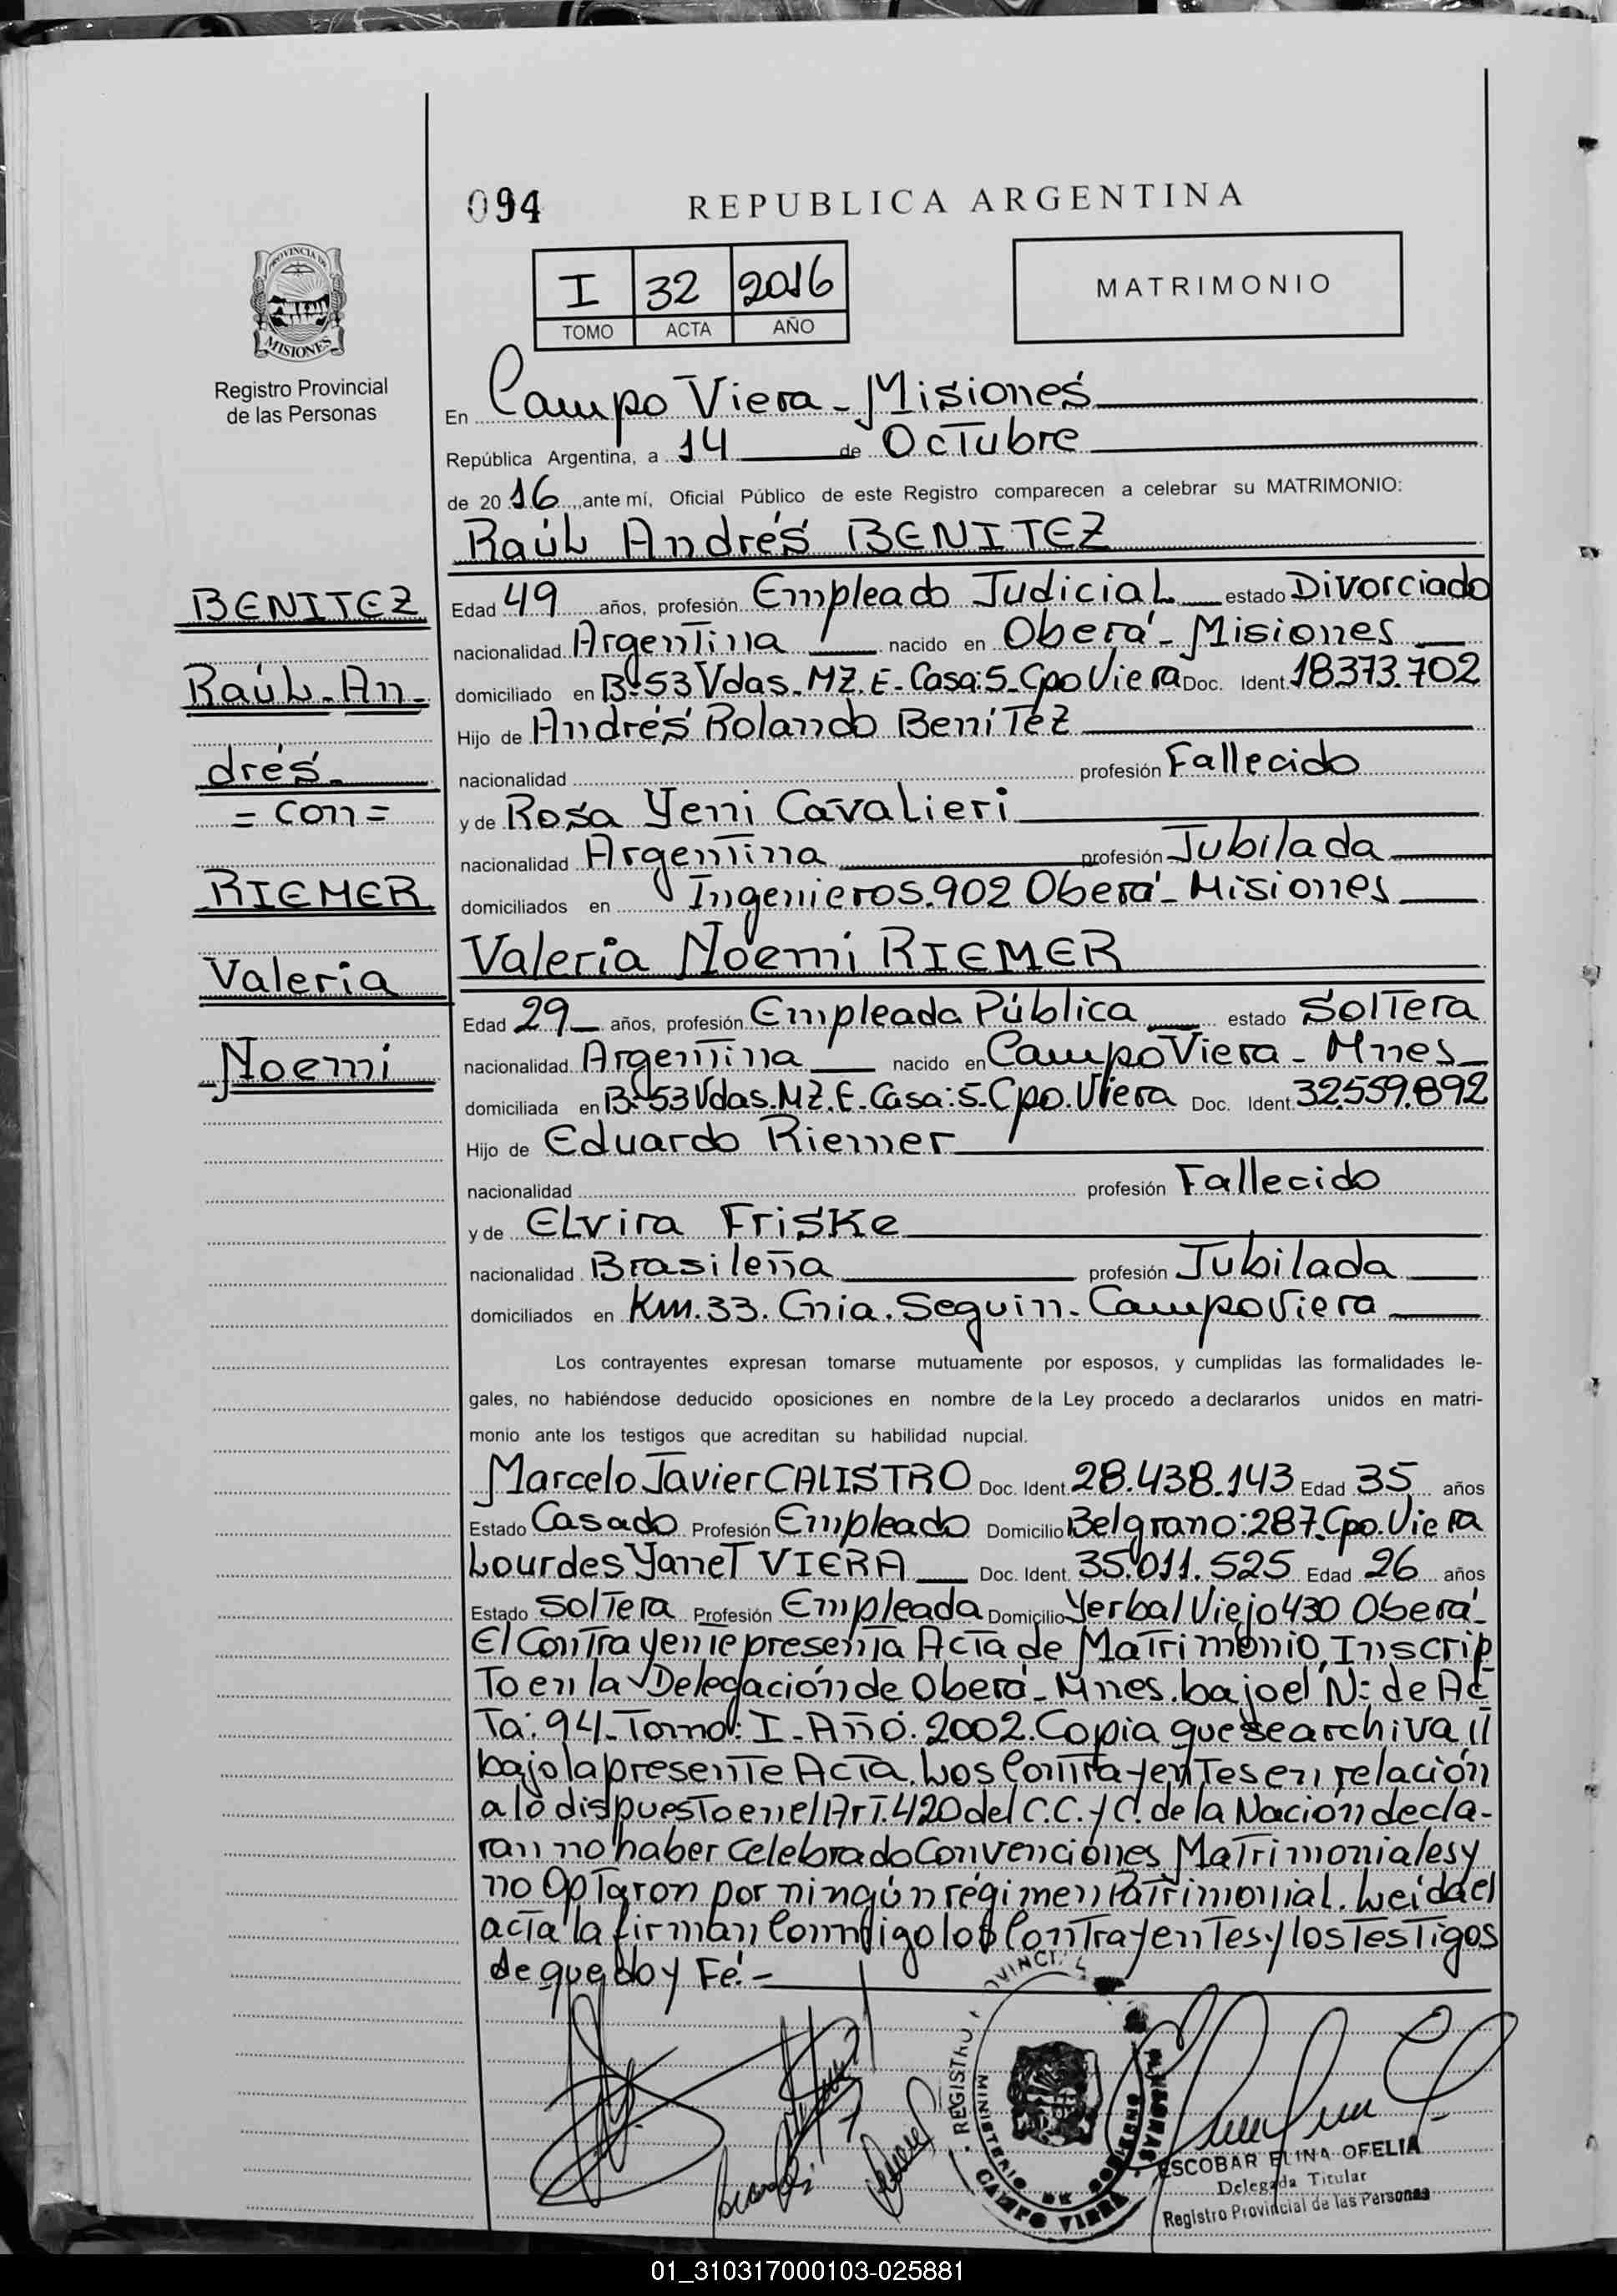 094
REPUBLICA ARGENTINA
I 32 2016
TOMO ACTA AÑO
MATRIMONIO
PROVINCIA DE
MISIONES
Registro Provincial
de las Personas
BENITEZ
Raúl-An-
drés-
= con =
RIEMER
Valeria
Noemi
En Campo Viera - Misiones
República Argentina, a 14 de Octubre
de 2016, ante mí, Oficial Público de este Registro comparecen a celebrar su MATRIMONIO:
Raúl Andrés BENITEZ
Edad 49 años, profesión Empleado Judicial estado Divorciado
nacionalidad Argentina nacido en Oberá - Misiones
domiciliado en B-53 Vdas. MZ. E- Casa:5- Cpo Viera Doc. Ident. 18.373.702
Hijo de Andrés Rolando Benitez
nacionalidad profesión Fallecido
y de Rosa Yeni Cavalieri
nacionalidad Argentina profesión Jubilada
domiciliados en Ingenieros.902 Oberá - Misiones
Valeria Noemi RIEMER
Edad 29 años, profesión Empleada Pública estado Soltera
nacionalidad Argentina nacido en Campo Viera - Mnes
domiciliada en B-53 Vdas. MZ. E- Casa:5- Cpo. Viera Doc. Ident. 32.559.892
Hijo de Eduardo Riemer
nacionalidad profesión Fallecido
y de Elvira Friske
nacionalidad Brasileña profesión Jubilada
domiciliados en Km.33. Cnia. Seguin - Campo Viera
Los contrayentes expresan tomarse mutuamente por esposos, y cumplidas las formalidades le-
gales, no habiéndose deducido oposiciones en nombre de la Ley procedo a declararlos unidos en matri-
monio ante los testigos que acreditan su habilidad nupcial.
Marcelo Javier CALISTRO Doc. Ident. 28.438.143 Edad 35 años
Estado Casado Profesión Empleado Domicilio Belgrano:287. Cpo. Viera
Lourdes Yanet VIERA Doc. Ident. 35.011.525 Edad 26 años
Estado Soltera Profesión Empleada Domicilio Yerbal Viejo 430 Oberá-
El Contrayente presenta Acta de Matrimonio, Inscrip
to en la Delegación de Oberá - Mnes. bajo el N: de Ac
ta: 94- Tomo: I- Año: 2002. Copia que se archiva
bajo la presente Acta. Los Contrayentes en relación
a lo dispuesto en el Art. 420 del C.C. y C. de la Nación decla-
ran no haber celebrado Convenciones Matrimoniales y
no Optaron por ningún régimen Patrimonial. Leida el
acta la firman Conmigo los Contrayentes y los Testigos
de que doy Fé.-
MINISTERIO DE
CAMPO VIERA
ESCOBAR ELINA OFELIA
Delegada Titular
Registro Provincial de las Personas
01_310317000103-025881